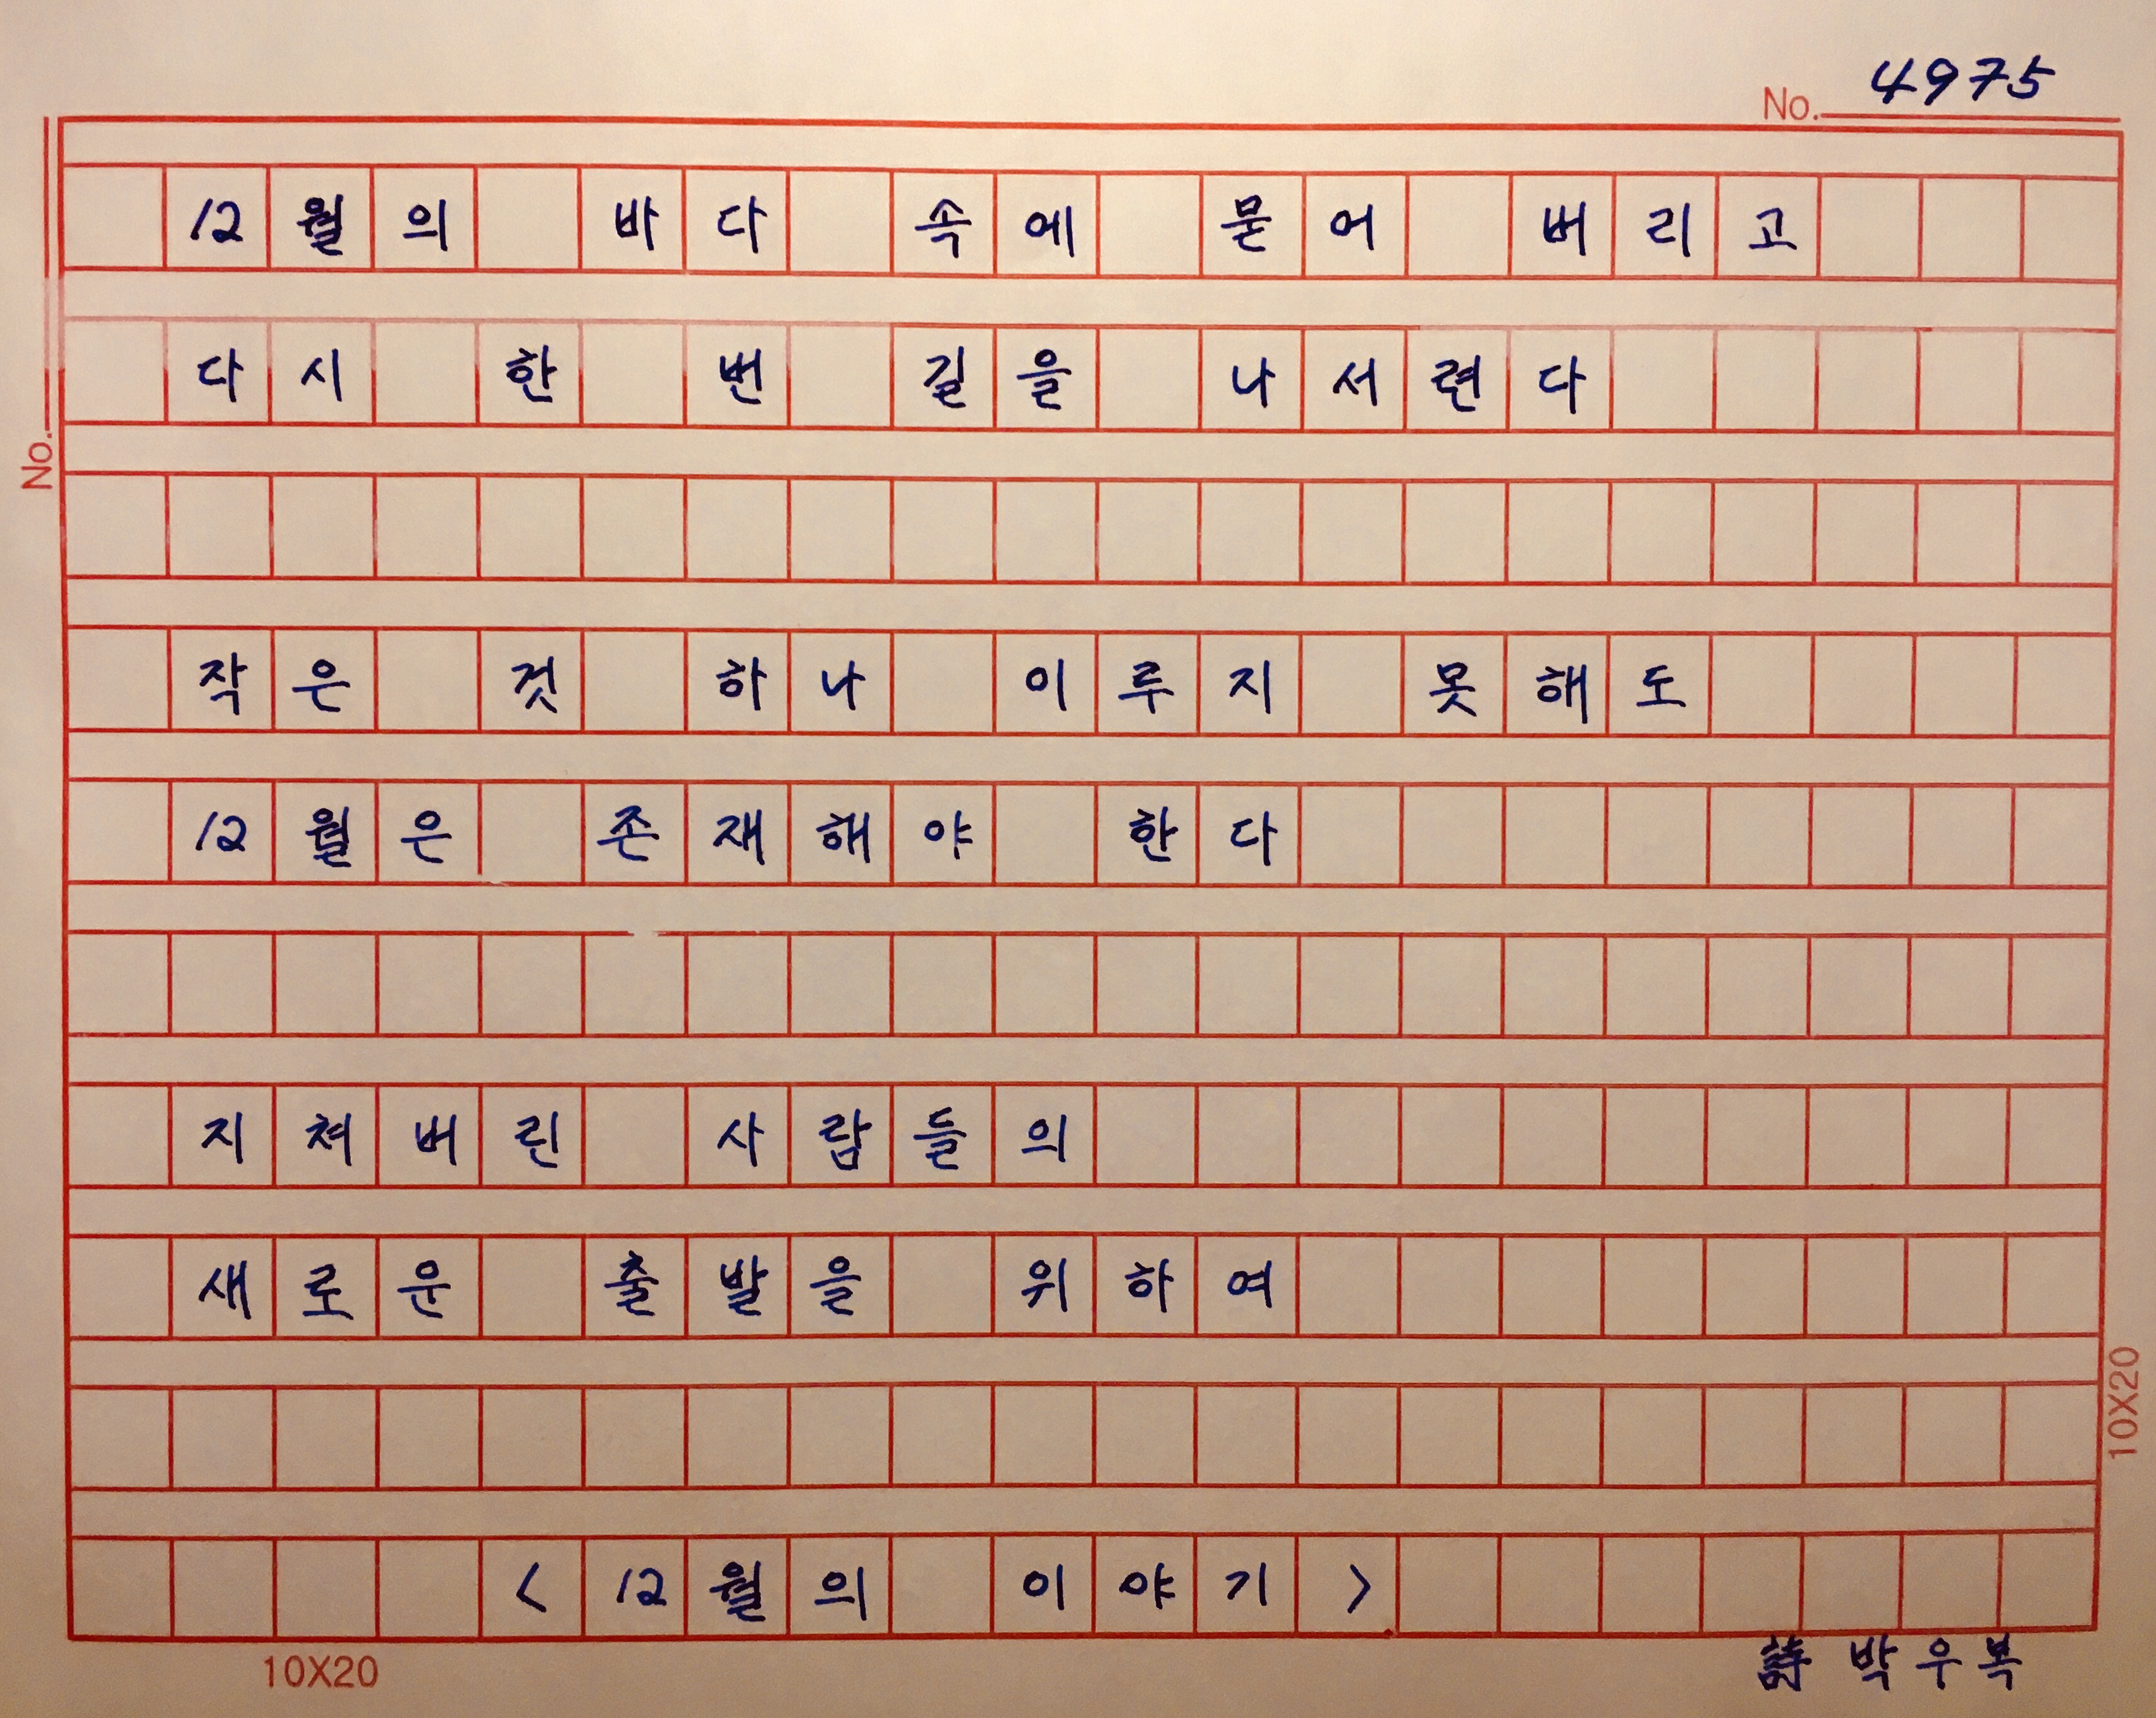 No. 4975
12월의 바다 속에 묻어 버리고
다시 한 번 길을 나서련다
No.
작은 것 하나 이루지 못해도
12월은 존재해야 한다
지쳐버린 사람들의
새로운 출발을 위하여
10X20
<12월의 이야기>
10X20
詩 박우복